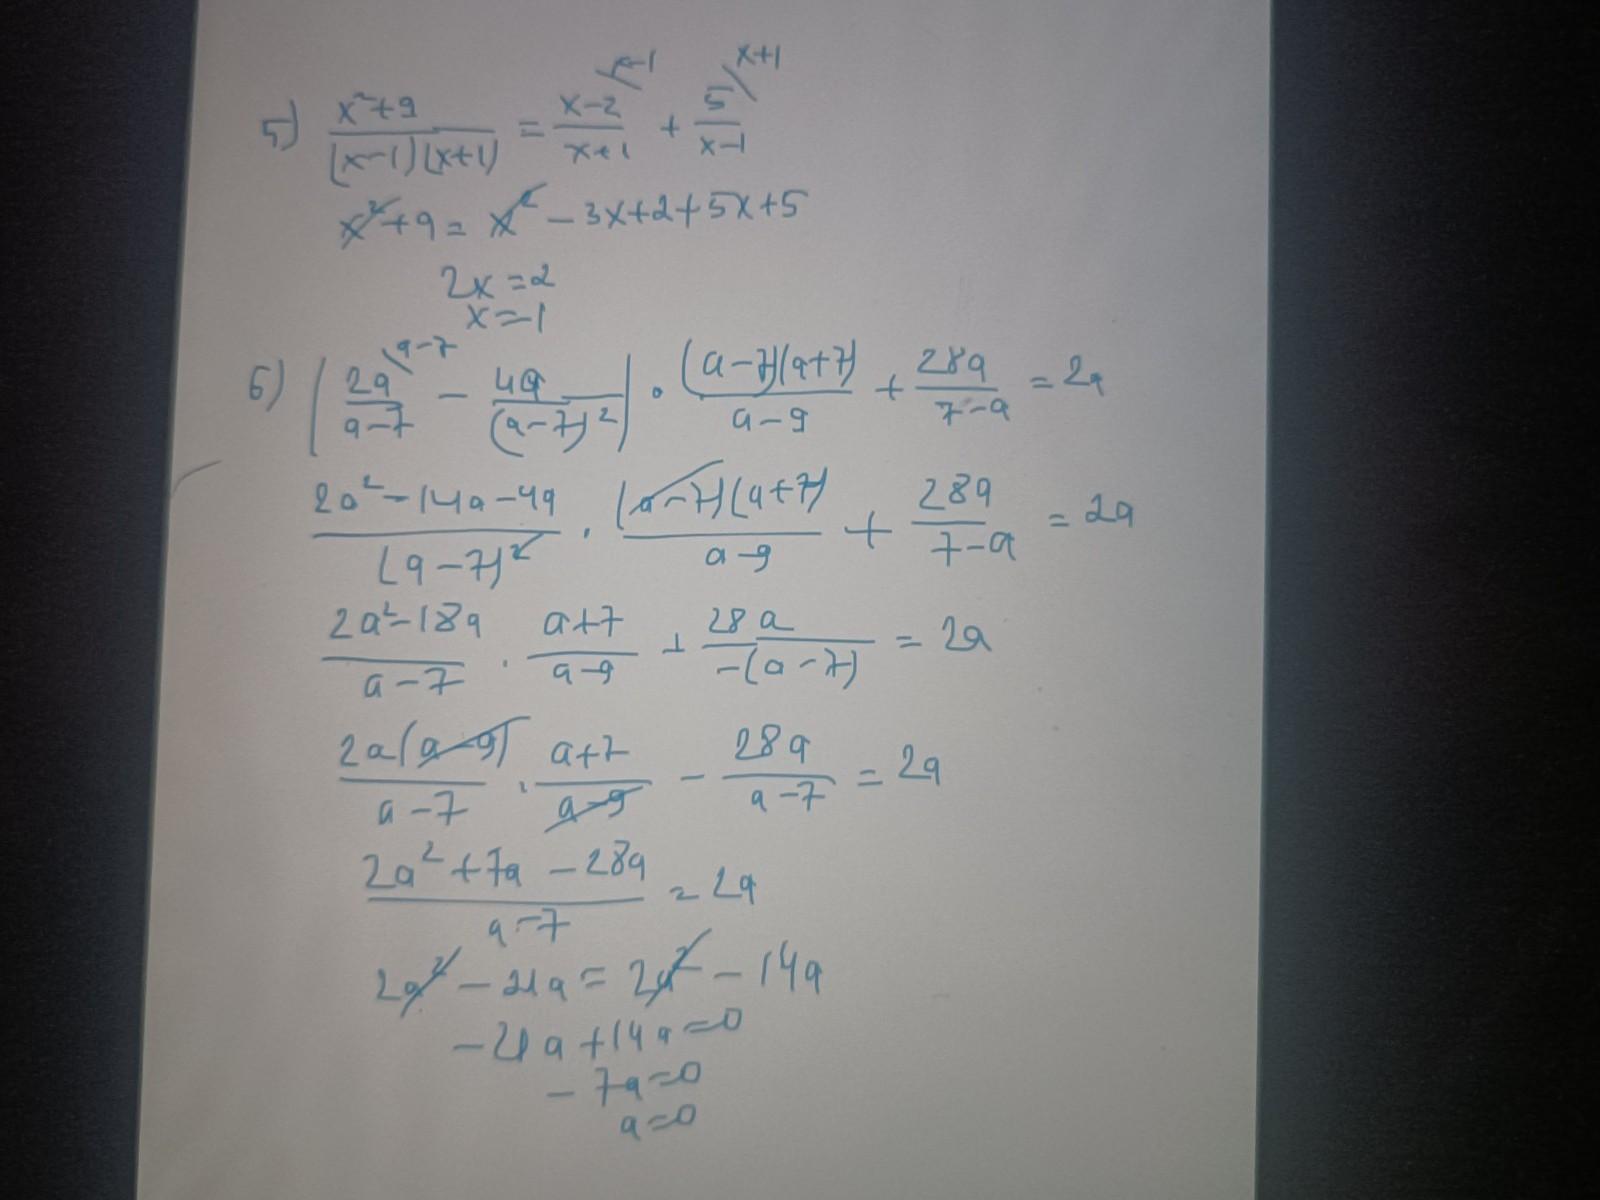 5) (x²+9)/((x-1)(x+1)) = (x-2)/(x+1) \x-1 + 5/(x-1) \x+1
x²+9 = x² - 3x+2+5x+5
2x = 2
x = -1
6) (2a/(a-7) \a-7 - 4a/(a-7)²) · ((a-7)(a+7))/(a-9) + 28a/(7-a) = 2a
(2a²-14a-4a)/(a-7)² · ((a-7)(a+7))/(a-9) + 28a/(7-a) = 2a
(2a²-18a)/(a-7) · (a+7)/(a-9) + 28a/(-(a-7)) = 2a
2a(a-9)/(a-7) · (a+7)/(a-9) - 28a/(a-7) = 2a
(2a²+7a-28a)/(a-7) = 2a
2a² - 21a = 2a² - 14a
-21a+14a=0
-7a=0
a=0